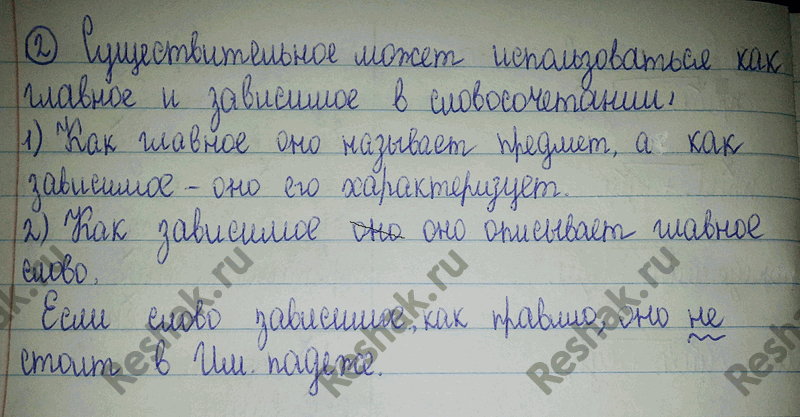 ② Существительное может использоваться как
главное и зависимое в словосочетании:
1) Как главное оно называет предмет, а как
зависимое - оно его характеризует.
2) Как зависимое оно оно описывает главное
слово.
Если слово зависимое, как правило, оно не
стоит в Им. падеже.
Reshak.ru
Reshak.ru
Reshak.ru
Reshak.ru